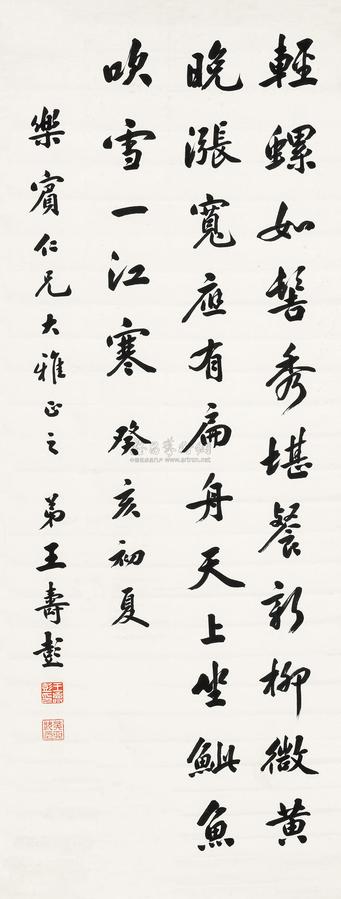 輕螺如髻秀堪餐新柳微黄
晚漲寬應有扁舟天上坐魮魚
吹雪一江寒 癸亥初夏
樂賓仁兄大雅正之 弟王壽彭